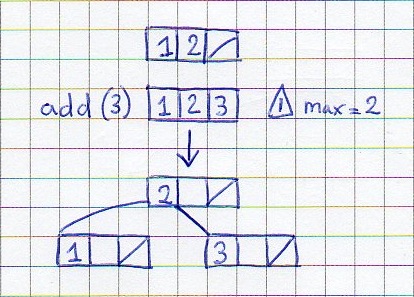 1 2
add (3) 1 2 3 ! max = 2
2
1 3